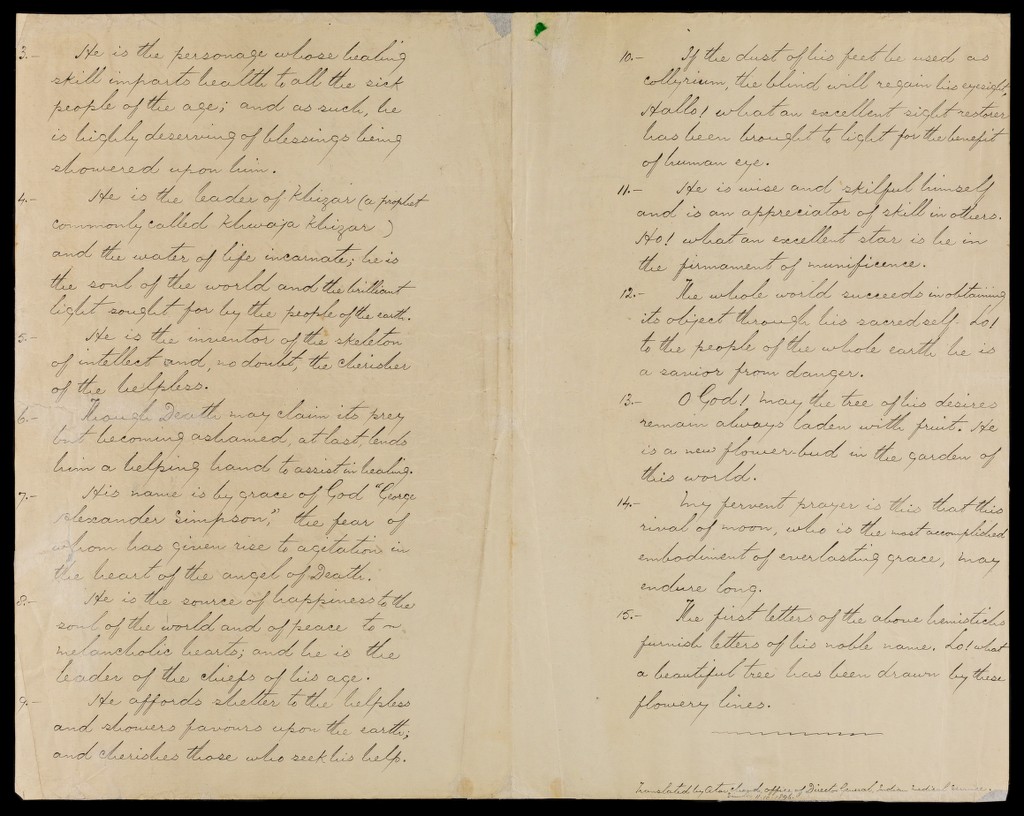 3.- He is the personage whose healing
skill imparts health to all the sick
people of the age; and as such, he
is highly deserving of blessings being
showered upon him.
4.- He is the leader of Khizar (a prophet
commonly called Khwaja Khizar)
and the water of life incarnate; he is
the soul of the world and the brilliant
light sought for by the people of the earth.
5.- He is the inventor of the skeleton
of intellect and, no doubt, the cherisher
of the helpless.
6.- Though Death may claim its prey
but becoming ashamed, at last, lends
him a helping hand to assist in healing.
7.- His name is by grace of God "George
Alexander Simpson," the fear of
whom has given rise to agitation in
the heart of the angel of Death.
8.- He is the source of happiness to the
soul of the world and of peace to ~
melancholic hearts; and he is the
leader of the chiefs of his age.
9.- He affords shelter to the helpless
and showers favours upon the earth;
and cherishes those who seek his help.
10.- If the dust of his feet be used as
collyrium, the blind will regain his eyesight.
Hallo! what an excellent sight restorer
has been brought to light for the benefit
of human eye.
11.- He is wise and skilful himself
and is an appreciator of skill in others.
Ho! what an excellent star is he in
the firmament of munificence.
12.- The whole world succeeds in obtaining
its object through his sacred self. Lo!
to the people of the whole earth he is
a savior from danger.
13.- O God! may the tree of his desires
remain always laden with fruit. He
is a new flower-bud in the garden of
this world.
14.- My fervent prayer is this that this
rival of moon, who is the most accomplished
embodiment of everlasting grace, may
endure long.
15.- The first letters of the above hemistichs
furnish letters of his noble name. Lo! what
a beautiful tree has been drawn by these
flowery lines.
Translated by office of Director General Indian Medical Service.